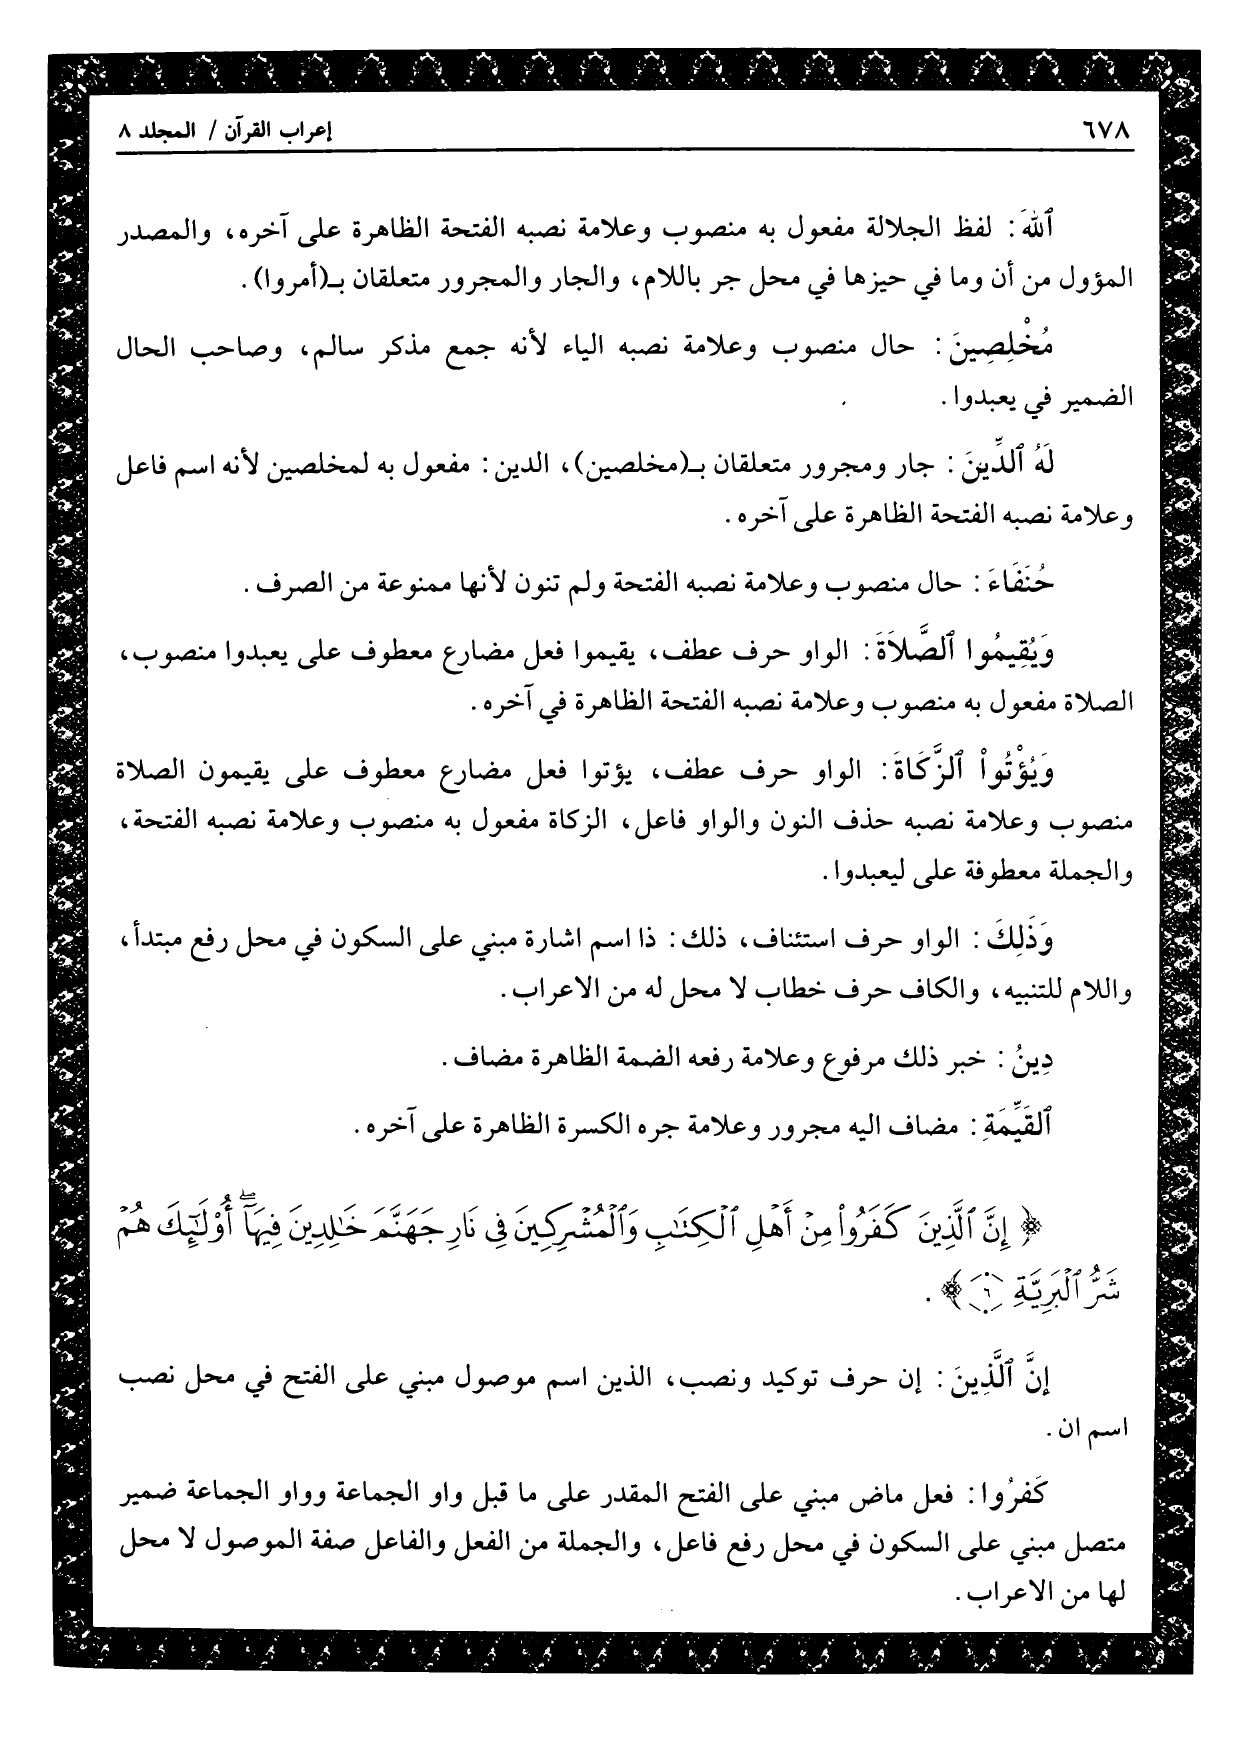 ٦٧٨
إعراب القرآن / المجلد ٨
ٱللهَ: لفظ الجلالة مفعول به منصوب وعلامة نصبه الفتحة الظاهرة على آخره، والمصدر
المؤول من أن وما في حيزها في محل جر باللام، والجار والمجرور متعلقان بـ(أمروا).
مُخْلِصِينَ: حال منصوب وعلامة نصبه الياء لأنه جمع مذكر سالم، وصاحب الحال
الضمير في يعبدوا.
لَهُ ٱلدِّينَ: جار ومجرور متعلقان بـ(مخلصين)، الدين: مفعول به لمخلصين لأنه اسم فاعل
وعلامة نصبه الفتحة الظاهرة على آخره.
حُنَفَاءَ: حال منصوب وعلامة نصبه الفتحة ولم تنون لأنها ممنوعة من الصرف.
وَيُقِيمُوا ٱلصَّلَاةَ: الواو حرف عطف، يقيموا فعل مضارع معطوف على يعبدوا منصوب،
الصلاة مفعول به منصوب وعلامة نصبه الفتحة الظاهرة في آخره.
وَيُؤْتُواْ ٱلزَّكَاةَ: الواو حرف عطف، يؤتوا فعل مضارع معطوف على يقيمون الصلاة
منصوب وعلامة نصبه حذف النون والواو فاعل، الزكاة مفعول به منصوب وعلامة نصبه الفتحة،
والجملة معطوفة على ليعبدوا.
وَذَلِكَ: الواو حرف استئناف، ذلك: ذا اسم اشارة مبني على السكون في محل رفع مبتدأ،
واللام للتنبيه، والكاف حرف خطاب لا محل له من الاعراب.
دِينُ: خبر ذلك مرفوع وعلامة رفعه الضمة الظاهرة مضاف.
ٱلقَيِّمَةِ: مضاف اليه مجرور وعلامة جره الكسرة الظاهرة على آخره.
﴿ إِنَّ ٱلَّذِينَ كَفَرُواْ مِنْ أَهْلِ ٱلْكِتَـٰبِ وَٱلْمُشْرِكِينَ فِى نَارِ جَهَنَّمَ خَـٰلِدِينَ فِيهَآ ۚ أُوْلَـٰٓئِكَ هُمْ
شَرُّ ٱلْبَرِيَّةِ ٦ ﴾.
إِنَّ ٱلَّذِينَ: إن حرف توكيد ونصب، الذين اسم موصول مبني على الفتح في محل نصب
اسم ان.
كَفَرُوا: فعل ماض مبني على الفتح المقدر على ما قبل واو الجماعة وواو الجماعة ضمير
متصل مبني على السكون في محل رفع فاعل، والجملة من الفعل والفاعل صفة الموصول لا محل
لها من الاعراب.